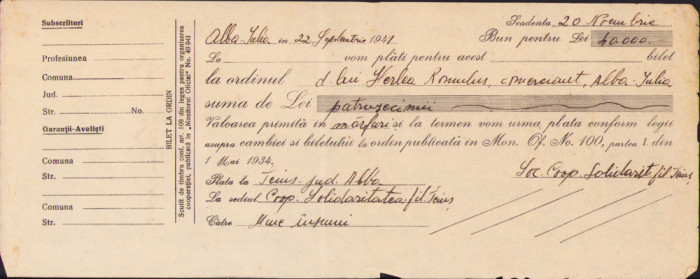 Subscriitori
Profesiunea
Comuna
Jud.
Str. No.
Garanții-Avaliști
Comuna
Str.
Comuna
Str.
BILET LA ORDIN
Scutit de timbru conf. art. 180 din legea pentru organizarea
cooperației, publicată în „Monitorul Oficial" No.
Scadența 20 Noembrie
Alba-Iulia in 22 Septembrie 1941 Bun pentru Lei 40.000.-
La vom plăti pentru acest bilet
la ordinul d-lui Herlea Romulus, comerciant, Alba-Iulia
suma de Lei patruzecimii
Valoarea primită in mărfuri și la termen vom urma plata conform legii
asupra cambiei și biletului la ordin publicată in Mon. Of. No. 100, partea I. din
1 Mai 1934.
Plata la Teiuș jud. Alba
Soc. Coop. Solidarit. fil. Teiuș
La sediul Coop. Solidaritatea fil. Teiuș
Către Mine însumi